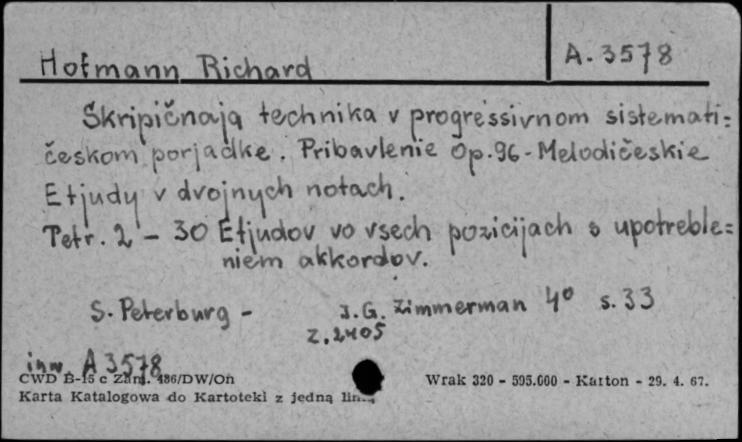 Hofmann Richard
A. 3578
Skripičnaja technika v progressivnom sistemati=
českom porjadke. Pribavlenie Op. 96 - Melodičeskie
Etjudy v dvojnych notach.
Tetr. 2 - 30 Etjudov vo vsech pozicijach s upotreble=
niem akkordov.
S. Peterburg - J. G. Zimmerman 4° s. 33
Z. 2405
inw. A 3578
CWD B-15 c Zam. 486/DW/On
Wrak 320 - 595.000 - Karton - 29. 4. 67.
Karta Katalogowa do Kartoteki z jedną